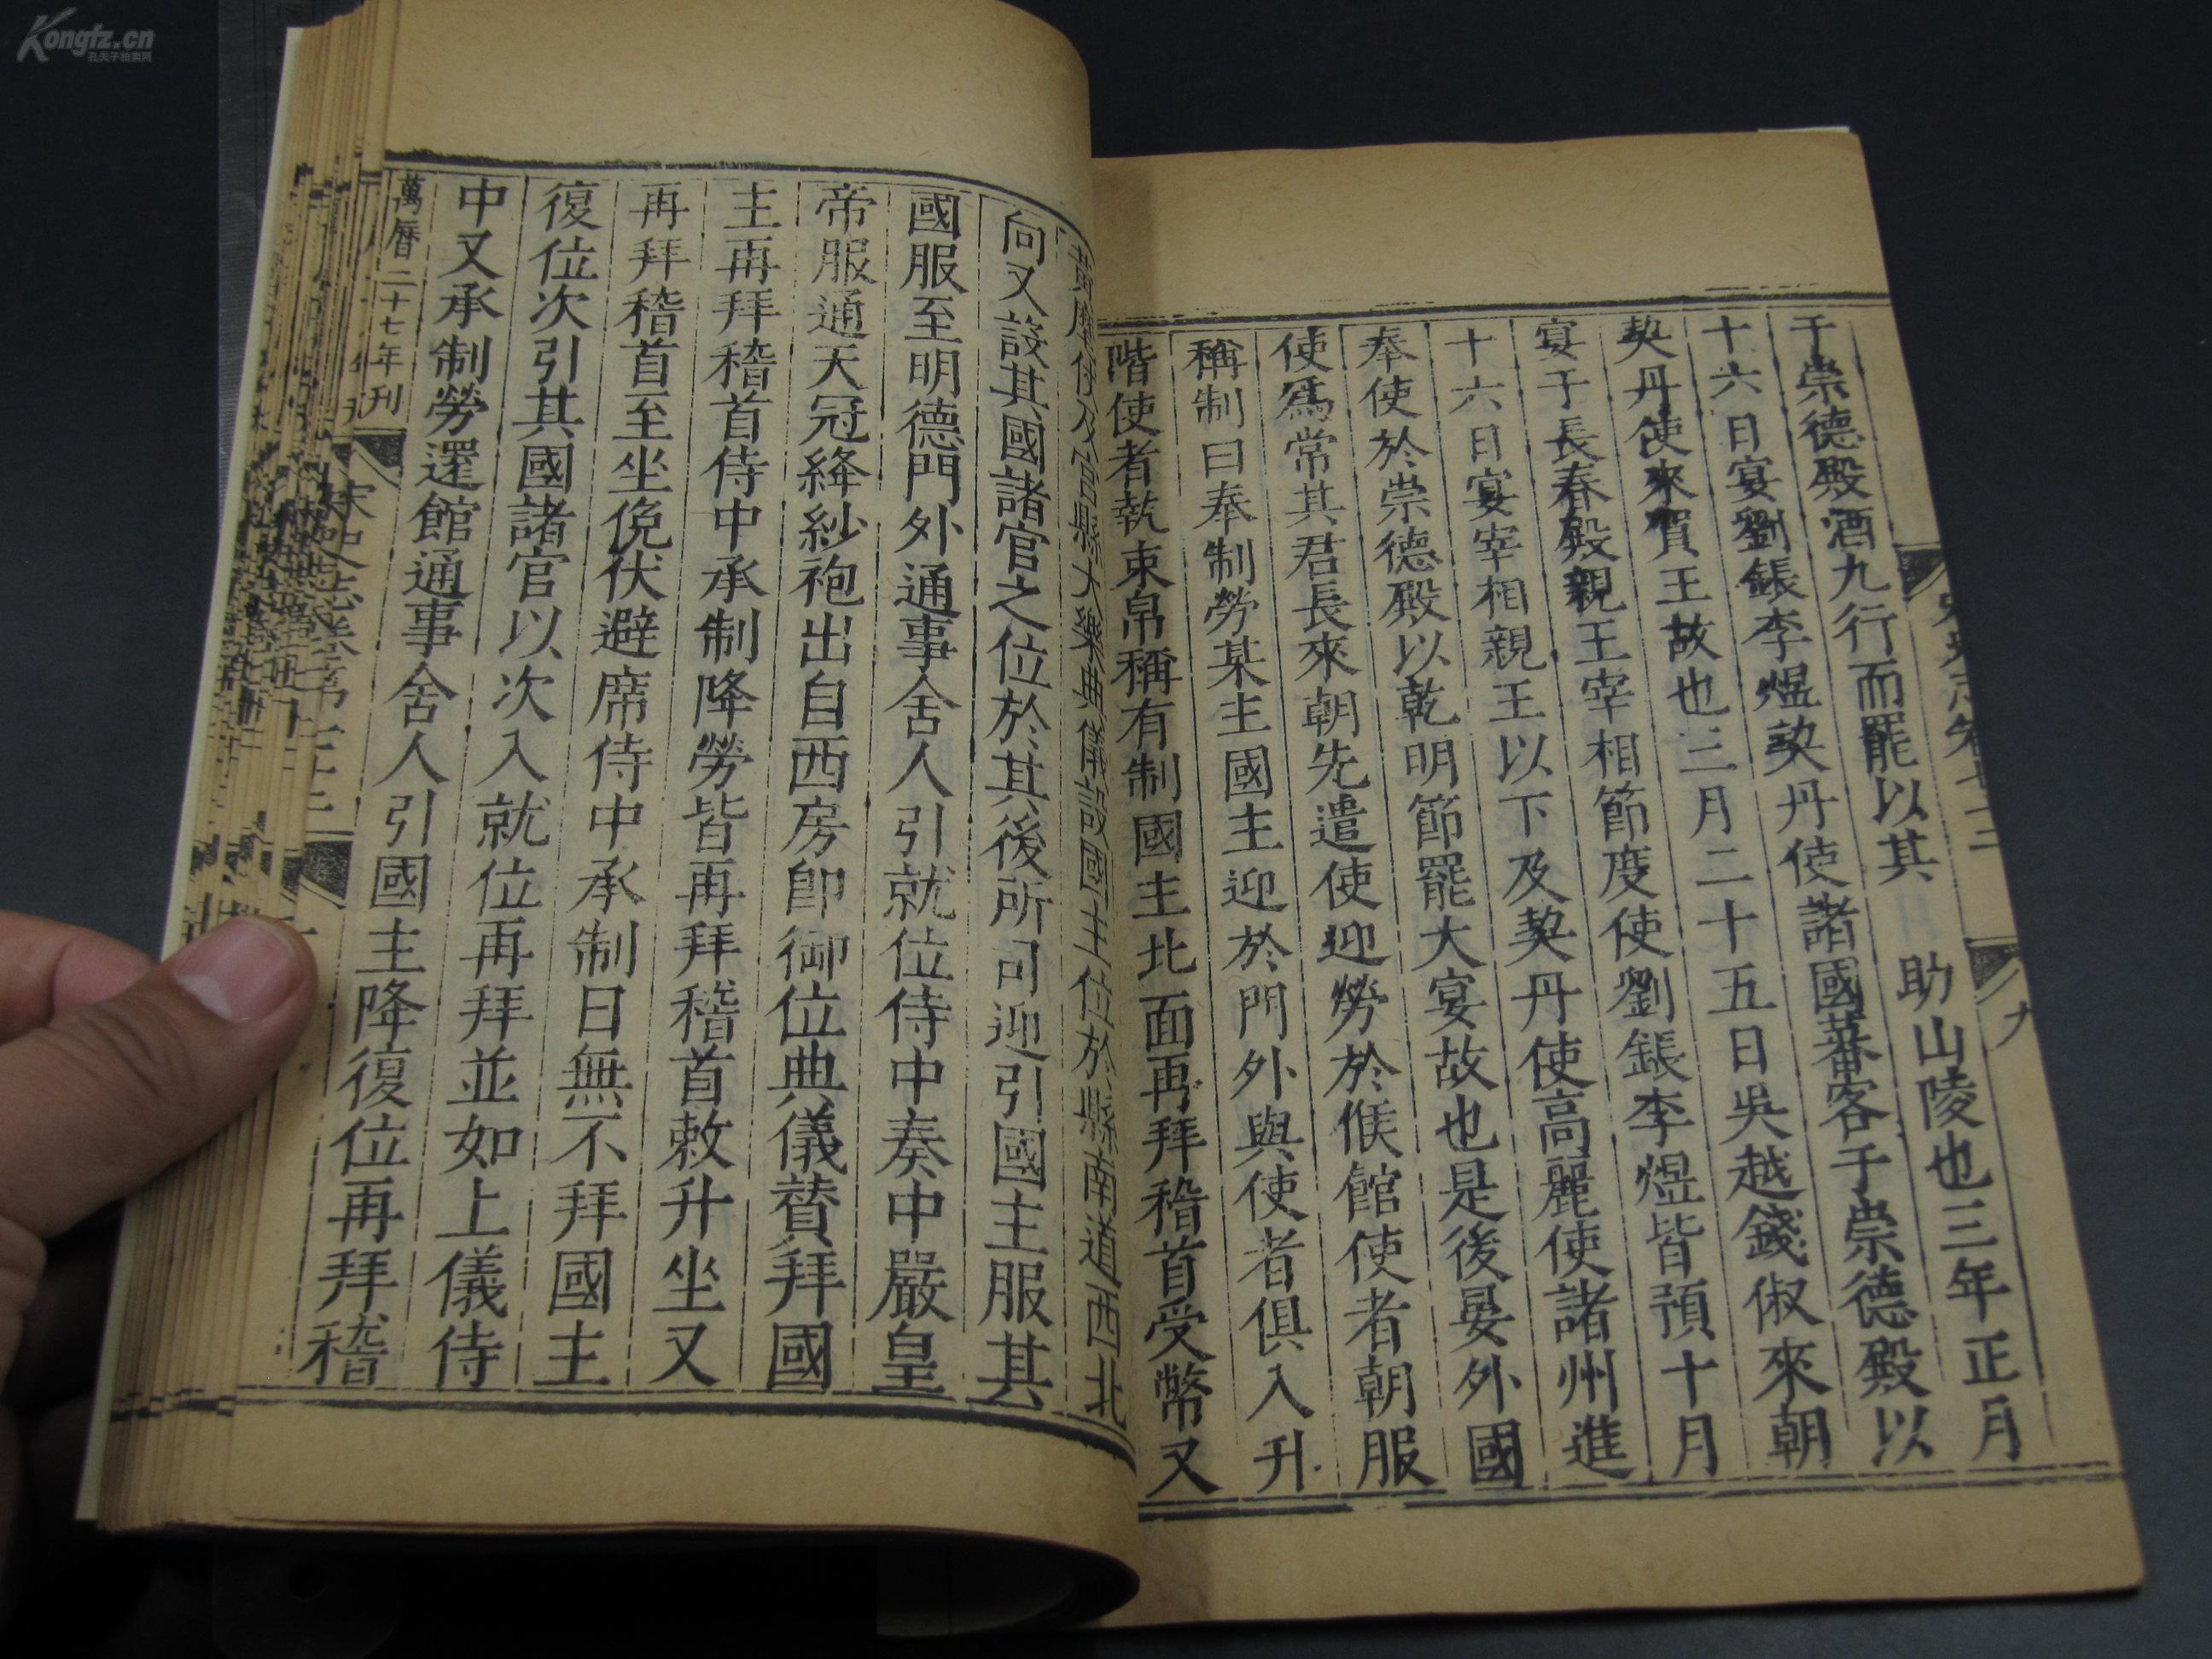 于崇德殿酒九行而罷以其 助山陵也三年正月
十六日宴劉鋹李煜契丹使諸國蕃客于崇德殿以
契丹使來賀王故也三月二十五日吳越錢俶來朝
宴于長春殿親王宰相節度使劉鋹李煜皆預十月
十六日宴宰相親王以下及契丹使高麗使諸州進
奉使於崇德殿以乾明節罷大宴故也是後晏外國
使爲常其君長來朝先遣使迎勞於候館使者朝服
稱制曰奉制勞某主國主迎於門外與使者俱入升
階使者執束帛稱有制國主北面再拜稽首受幣又
黃麾仗及宮縣大樂典儀設國主位於縣南道西北
向又設其國諸官之位於其後所司迎引國主服其
國服至明德門外通事舍人引就位侍中奏中嚴皇
帝服通天冠絳紗袍出自西房卽御位典儀贊拜國
主再拜稽首侍中承制降勞皆再拜稽首敕升坐又
再拜稽首至坐俛伏避席侍中承制曰無不拜國主
復位次引其國諸官以次入就位再拜並如上儀侍
中又承制勞還館通事舍人引國主降復位再拜稽
萬曆二十七年刊
宋史志卷
Kongfz.cn
孔夫子拍卖网